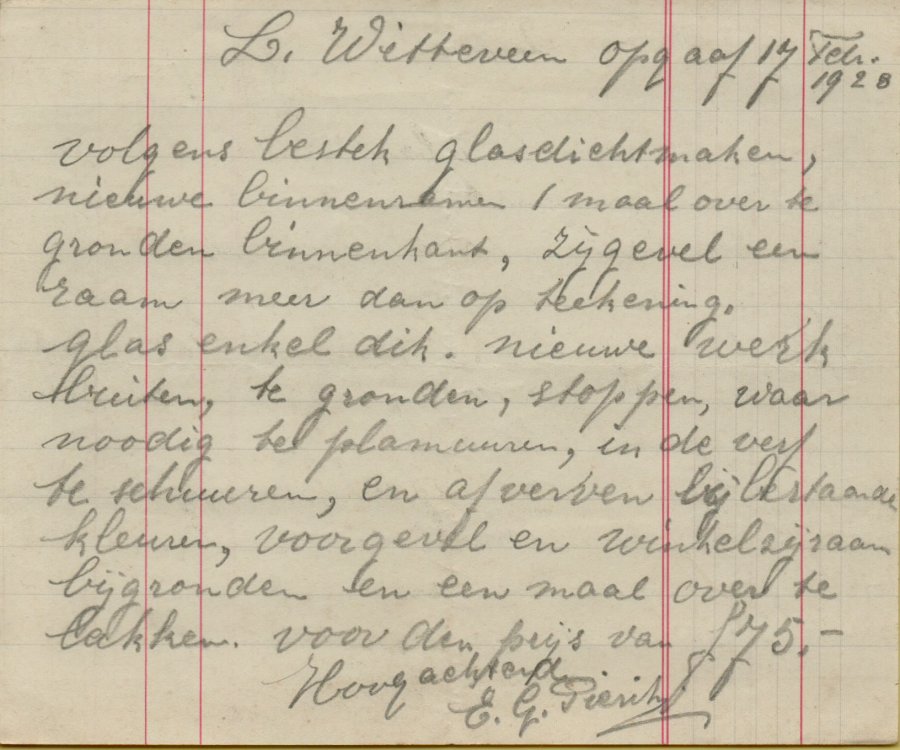 L. Witteveen opgaaf 17 Febr.
1928
volgens bestek glasdichtmaken,
nieuwe binnenramen 1 maal over te
gronden binnenkant, zijgevel een
raam meer dan op teekening.
glas enkel dik. nieuwe werk
buiten, te gronden, stoppen, waar
noodig te plamuuren, in de verf
te schuuren, en afverven bijbestaande
kleuren, voorgevel en winkelzijraam
bijgronden en een maal over te
lakken. voor den prijs van f 75.-
Hoogachtend
E. G. Pierik